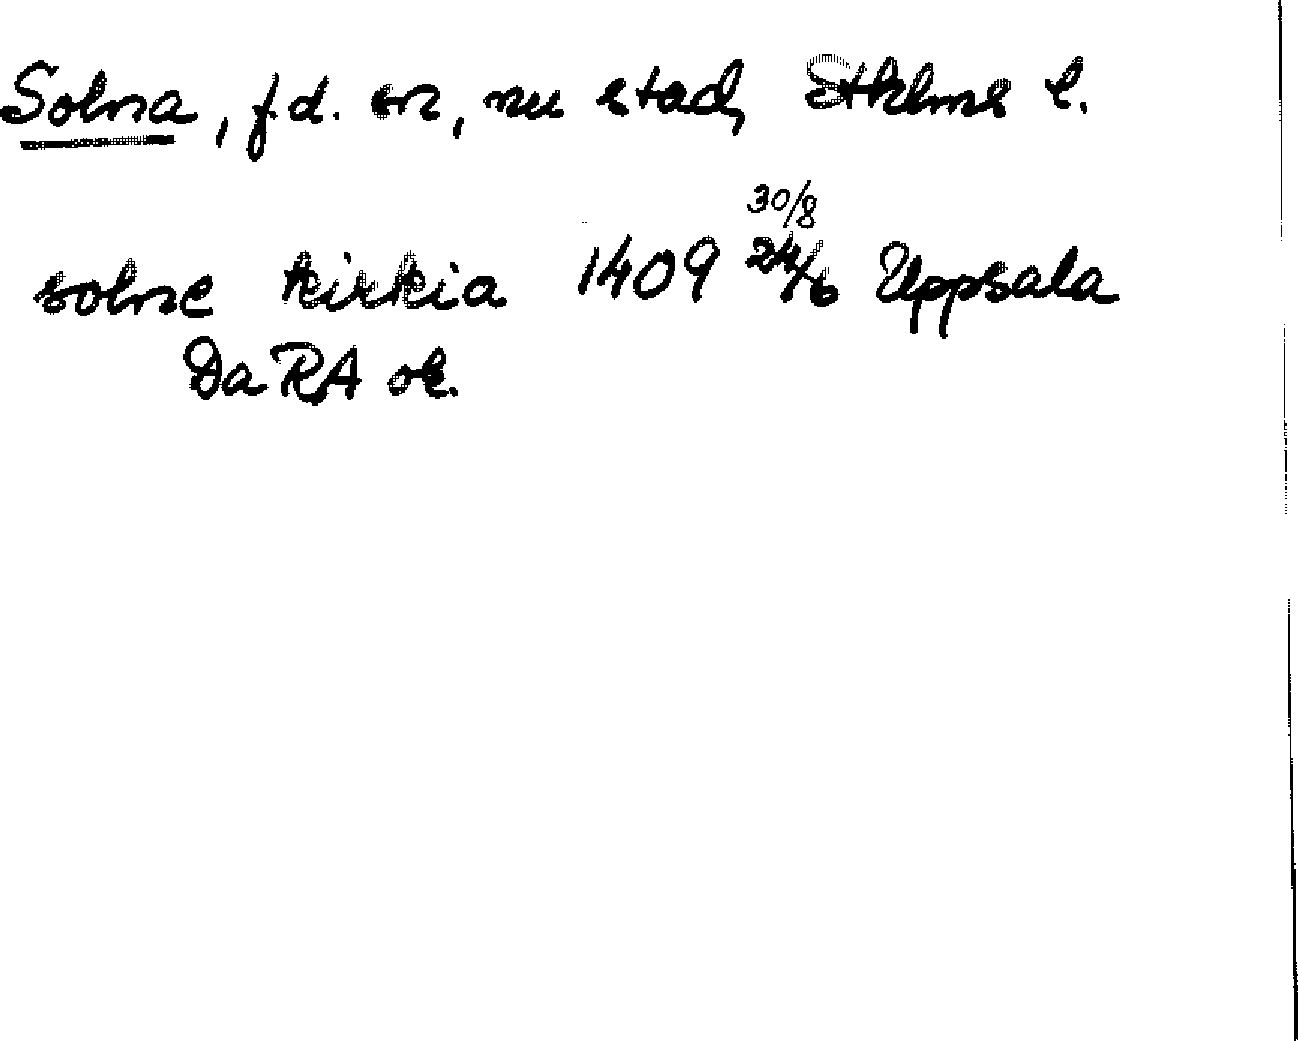 Solna, f.d. sn, nu stad, Sthlms l.
30/8
solne kirkia 1409 24/6 Uppsala
DaRA or.